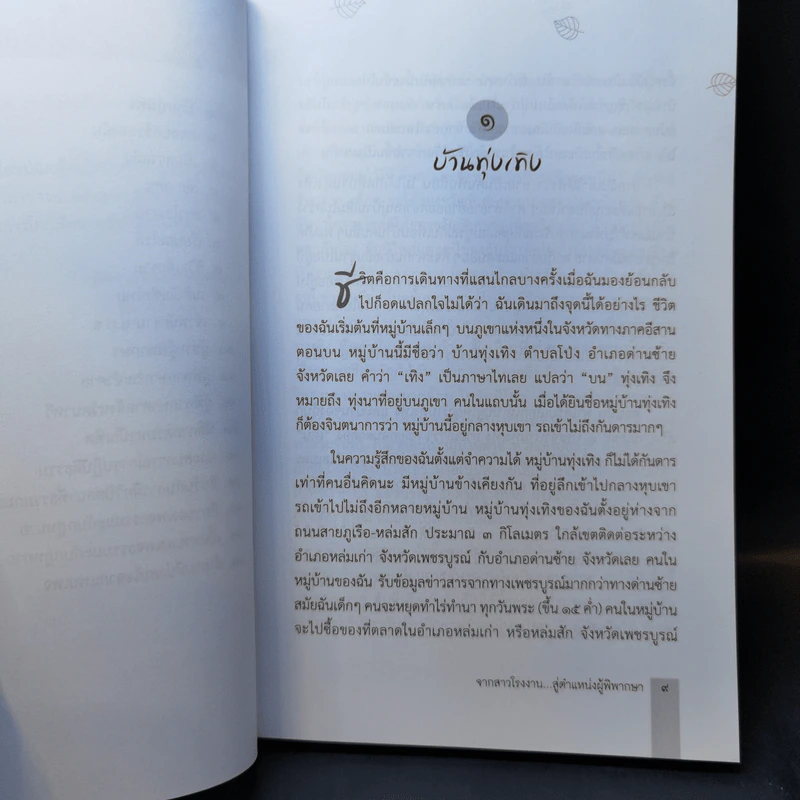 ๑
บ้านทุ่งเทิง
ชีวิตคือการเดินทางที่แสนไกลบางครั้งเมื่อฉันมองย้อนกลับ
ไปก็อดแปลกใจไม่ได้ว่า ฉันเดินมาถึงจุดนี้ได้อย่างไร ชีวิต
ของฉันเริ่มต้นที่หมู่บ้านเล็กๆ บนภูเขาแห่งหนึ่งในจังหวัดทางภาคอีสาน
ตอนบน หมู่บ้านนี้มีชื่อว่า บ้านทุ่งเทิง ตำบลโป่ง อำเภอด่านซ้าย
จังหวัดเลย คำว่า “เทิง” เป็นภาษาไทเลย แปลว่า “บน” ทุ่งเทิง จึง
หมายถึง ทุ่งนาที่อยู่บนภูเขา คนในแถบนั้น เมื่อได้ยินชื่อหมู่บ้านทุ่งเทิง
ก็ต้องจินตนาการว่า หมู่บ้านนี้อยู่กลางหุบเขา รถเข้าไม่ถึงกันดารมากๆ
ในความรู้สึกของฉันตั้งแต่จำความได้ หมู่บ้านทุ่งเทิง ก็ไม่ได้กันดาร
เท่าที่คนอื่นคิดนะ มีหมู่บ้านข้างเคียงกัน ที่อยู่ลึกเข้าไปกลางหุบเขา
รถเข้าไปไม่ถึงอีกหลายหมู่บ้าน หมู่บ้านทุ่งเทิงของฉันตั้งอยู่ห่างจาก
ถนนสายภูเรือ-หล่มสัก ประมาณ ๓ กิโลเมตร ใกล้เขตติดต่อระหว่าง
อำเภอหล่มเก่า จังหวัดเพชรบูรณ์ กับอำเภอด่านซ้าย จังหวัดเลย คนใน
หมู่บ้านของฉัน รับข้อมูลข่าวสารจากทางเพชรบูรณ์มากกว่าทางด่านซ้าย
สมัยฉันเด็กๆ คนจะหยุดทำไร่ทำนา ทุกวันพระ (ขึ้น ๑๕ ค่ำ) คนในหมู่บ้าน
จะไปซื้อของที่ตลาดในอำเภอหล่มเก่า หรือหล่มสัก จังหวัดเพชรบูรณ์
จากสาวโรงงาน...สู่ตำแหน่งผู้พิพากษา ๙